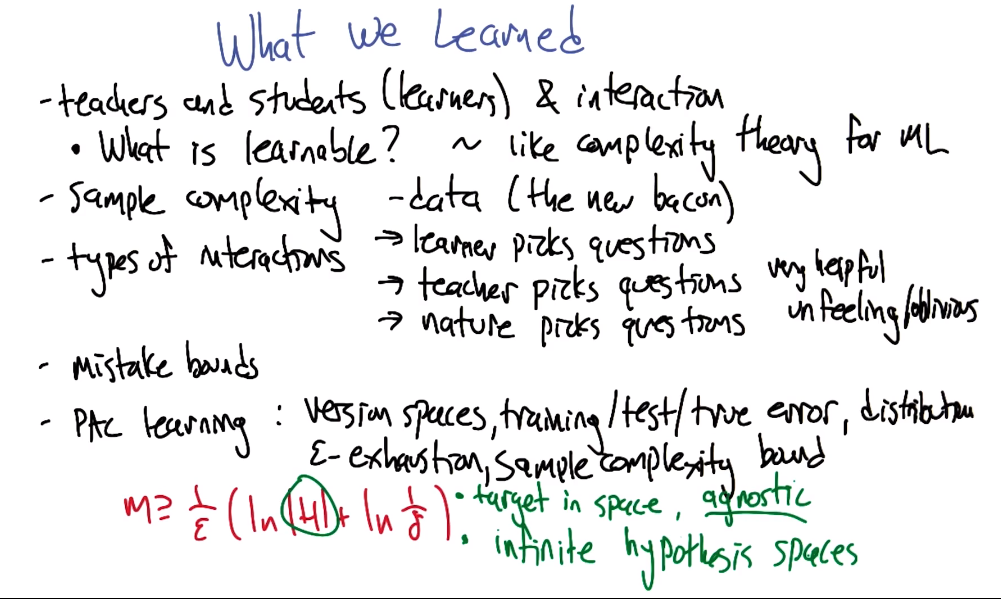 What we Learned
- teachers and students (learners) & interaction
• What is learnable? ~ like complexity theory for ML
- Sample complexity - data (the new bacon)
- types of interactions → learner picks questions
→ teacher picks questions very helpful
→ nature picks questions unfeeling/oblivious
- Mistake bounds
- PAC learning : version spaces, training/test/true error, distribution
ε-exhaustion, sample complexity bound
m ≥ 1/ε (ln |H| + ln 1/δ) • target in space, agnostic
• infinite hypothesis spaces